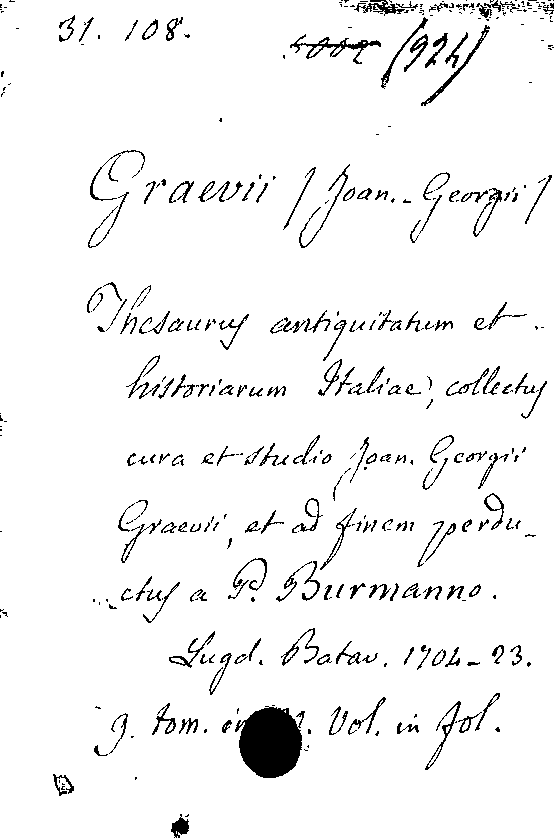 31. 108.
5002 (924)
Graevii / Joan. - Georgii /
Thesaurus antiquitatum et
historiarum Italiae, collectus
cura et studio Joan. Georgii
Graevii, et ad finem perdu-
ctus a P. Burmanno.
Lugd. Batav. 1704-23.
9. tom. in Vol. in fol.